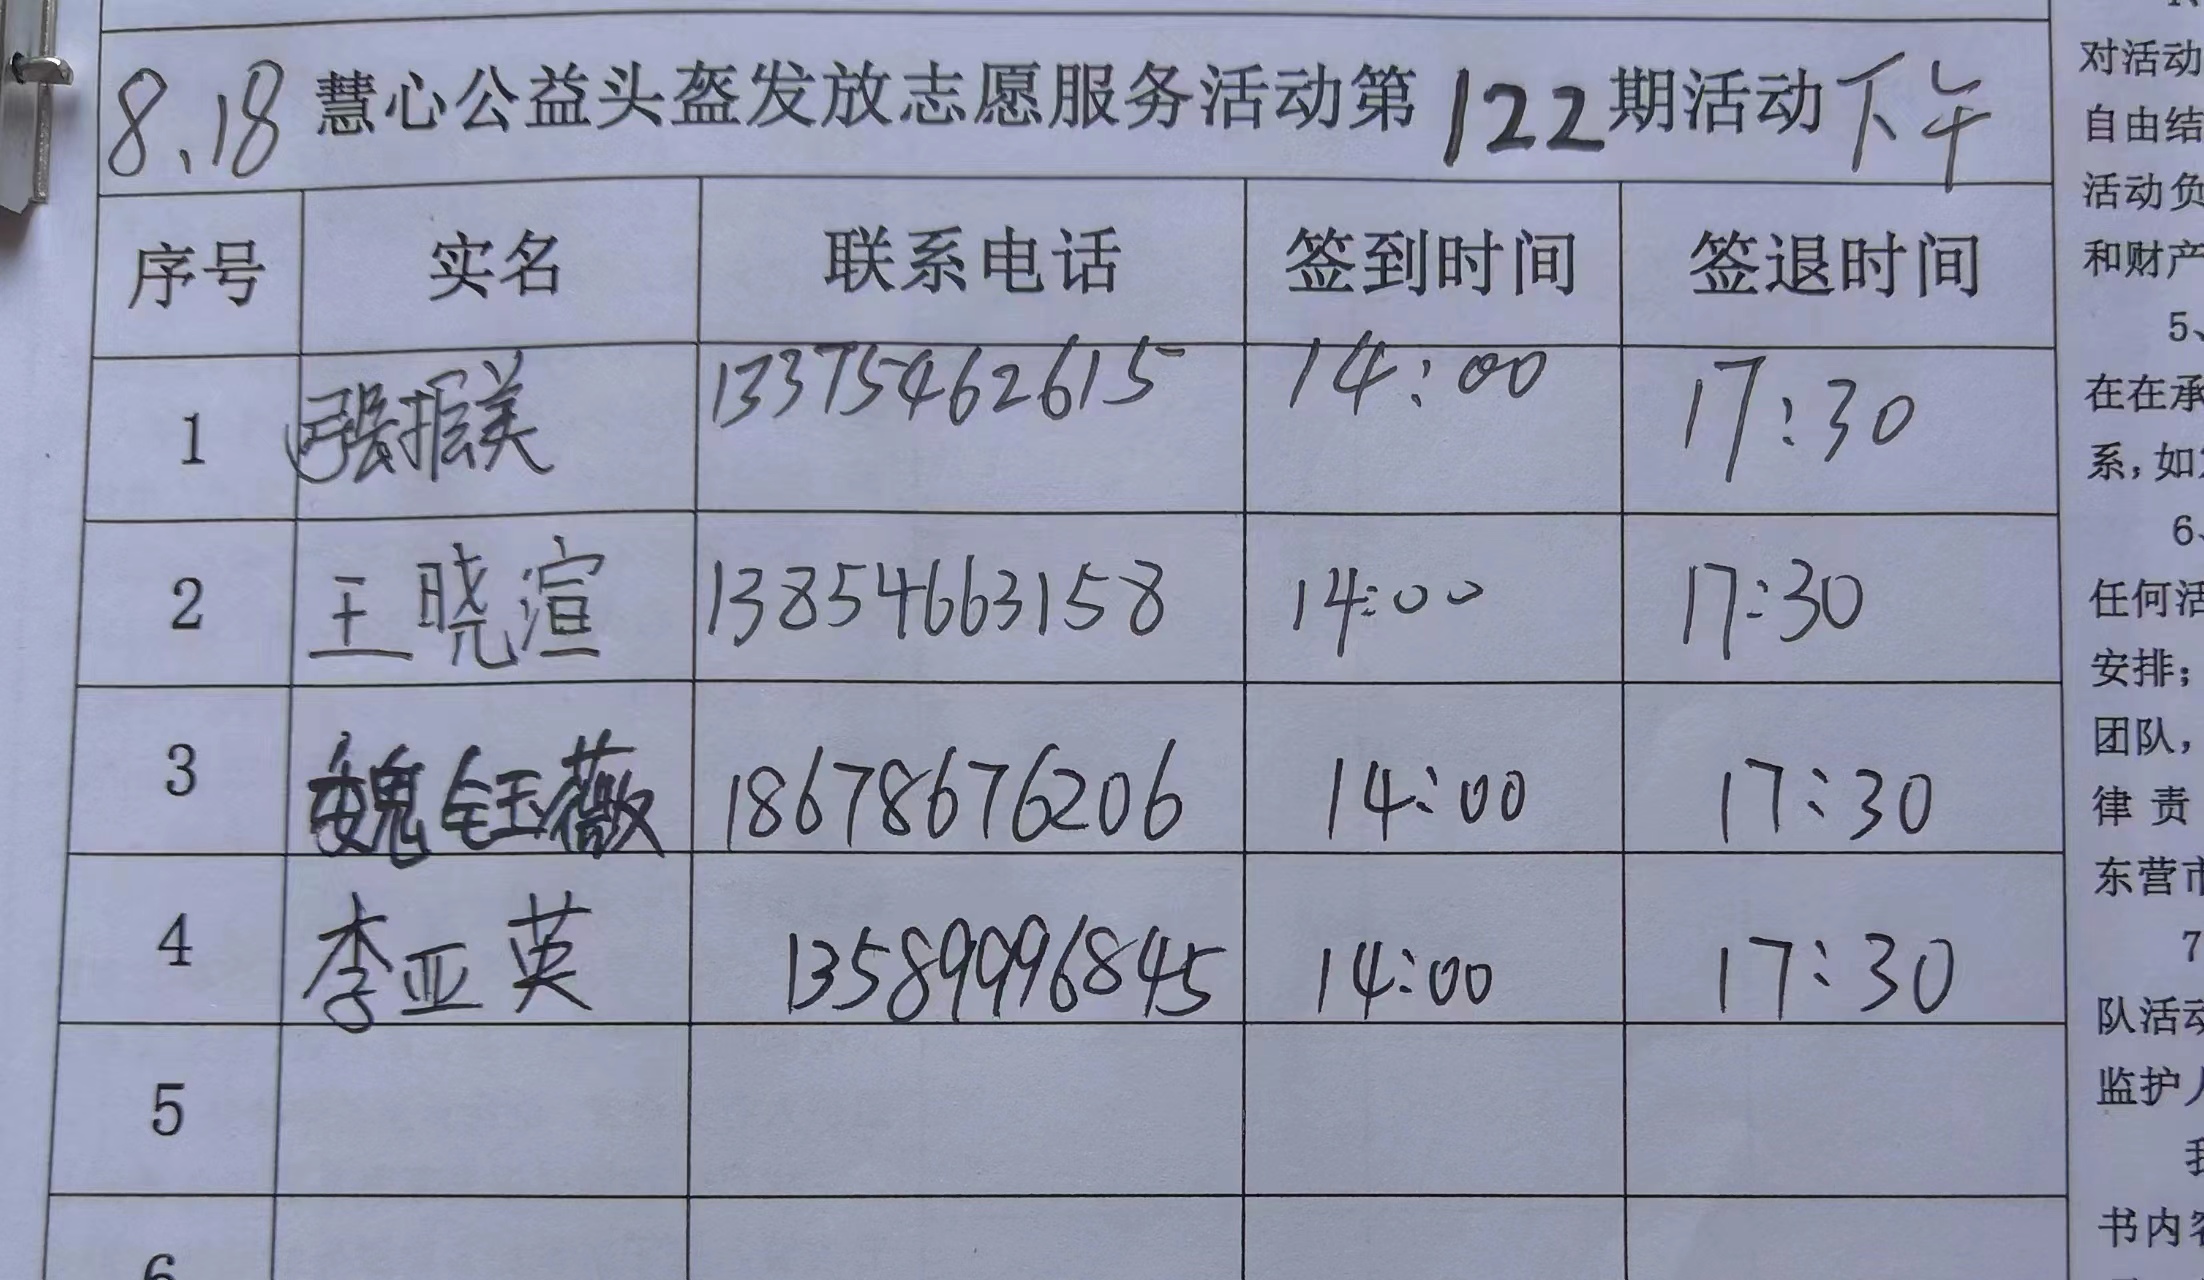 8.18 慧心公益头盔发放志愿服务活动第122期活动下午
序号 实名 联系电话 签到时间 签退时间
1 张振美 13375462615 14:00 17:30
2 王晓渲 13854663158 14:00 17:30
3 魏钰薇 18678676206 14:00 17:30
4 李亚英 13589996845 14:00 17:30
5
6
对活动
自由结
活动负
和财产
5、
在在承
系,如
6、
任何活
安排;
团队,
律责
东营市
7
队活动
监护人
我
书内容